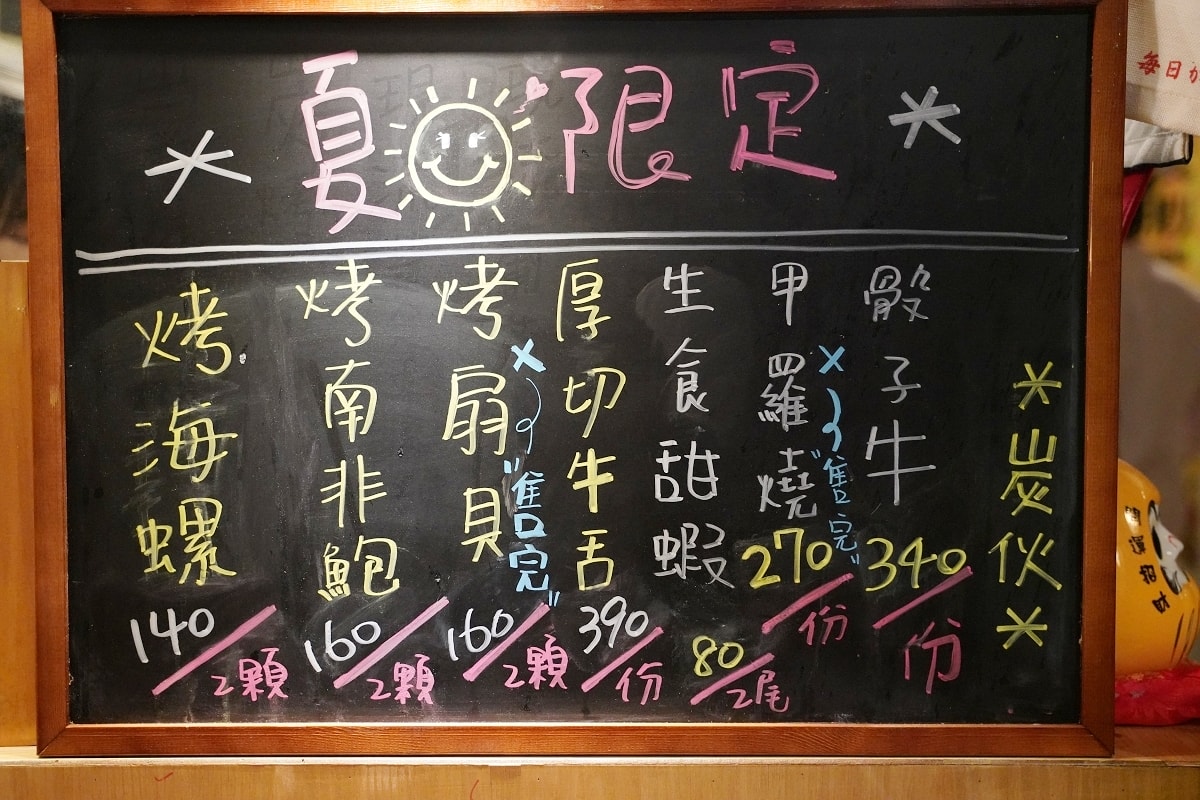 夏 限定
*炭伙*
骰子牛
340/份
甲羅燒
270/份
×
"售完"
生食甜蝦
80/2尾
厚切牛舌
390/份
烤扇貝
160/2顆
×
"售完"
烤南非鮑
160/2顆
烤海螺
140/2顆
毎日が
開運招財